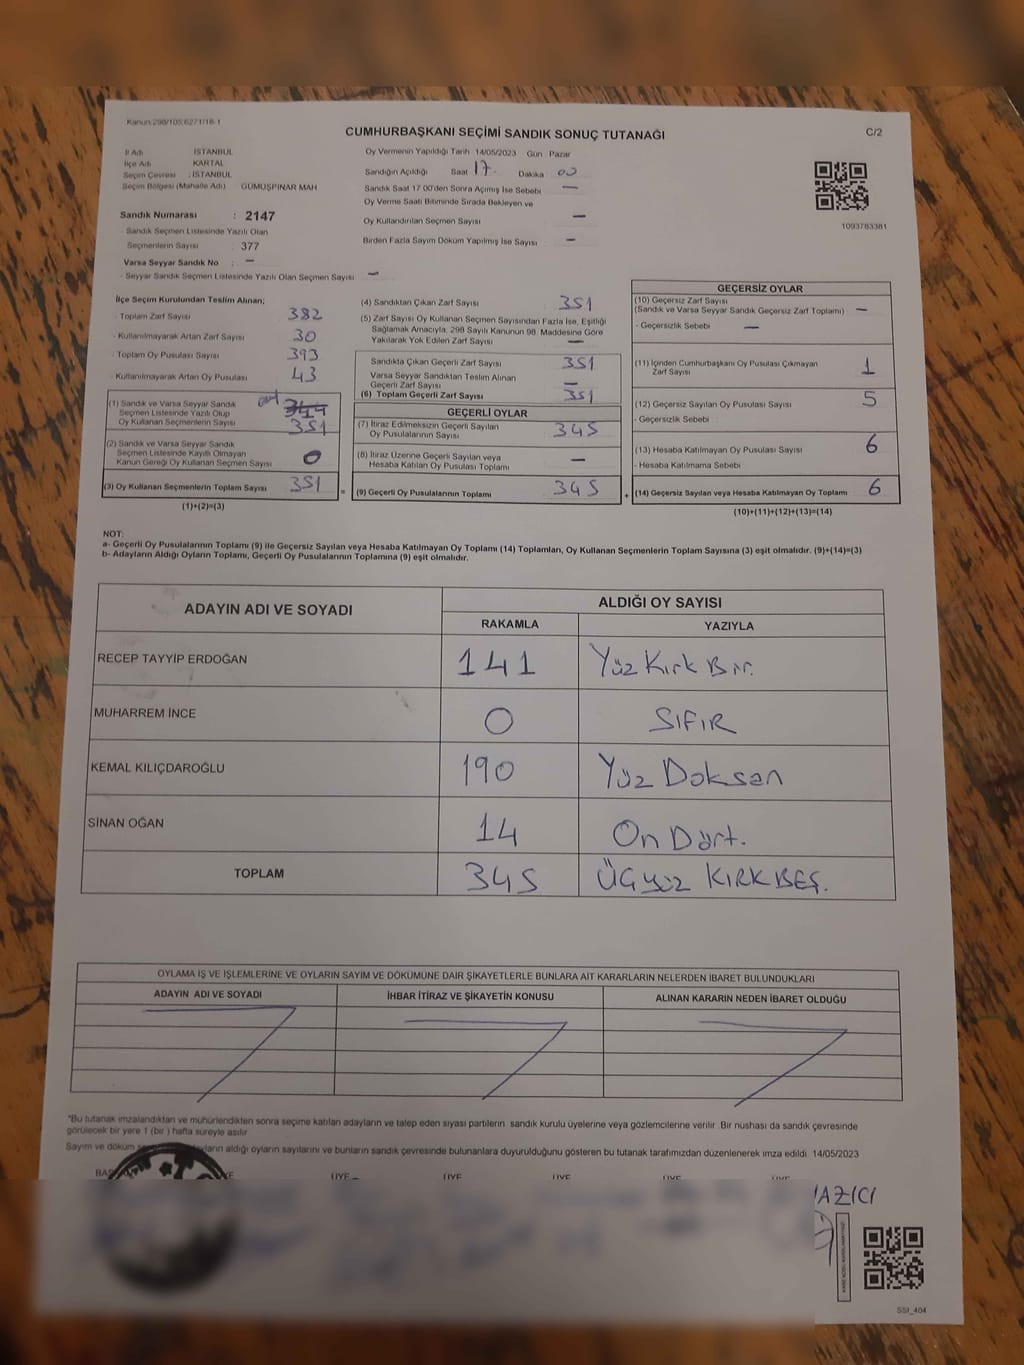 Kanun:298/105,6271/18-1
CUMHURBAŞKANI SEÇİMİ SANDIK SONUÇ TUTANAĞI
C/2
İl Adı İSTANBUL
İlçe Adı KARTAL
Seçim Çevresi : İSTANBUL
Seçim Bölgesi (Mahalle Adı) GÜMÜŞPINAR MAH
Sandık Numarası : 2147
- Sandık Seçmen Listesinde Yazılı Olan
Seçmenlerin Sayısı : 377
Varsa Seyyar Sandık No : -
- Seyyar Sandık Seçmen Listesinde Yazılı Olan Seçmen Sayısı -
Oy Vermenin Yapıldığı Tarih 14/05/2023 Gün Pazar
Sandığın Açıldığı Saat 17 Dakika 00
Sandık Saat 17 00'den Sonra Açımış İse Sebebi -
Oy Verme Saati Bitiminde Sırada Bekleyen ve
Oy Kullandırılan Seçmen Sayısı -
Birden Fazla Sayım Döküm Yapılmış İse Sayısı -
1093783381
İlçe Seçim Kurulundan Teslim Alınan;
- Toplam Zarf Sayısı 382
- Kullanılmayarak Artan Zarf Sayısı 30
- Toplam Oy Pusulası Sayısı 393
- Kullanılmayarak Artan Oy Pusulası 43
(1) Sandık ve Varsa Seyyar Sandık
Seçmen Listesinde Yazılı Olup
Oy Kullanan Seçmenlerin Sayısı 351
(2) Sandık ve Varsa Seyyar Sandık
Seçmen Listesinde Kayıtlı Olmayan
Kanun Gereği Oy Kullanan Seçmen Sayısı 0
(3) Oy Kullanan Seçmenlerin Toplam Sayısı 351 =
(1)+(2)=(3)
(4) Sandıktan Çıkan Zarf Sayısı 351
(5) Zarf Sayısı Oy Kullanan Seçmen Sayısından Fazla İse, Eşitliği
Sağlamak Amacıyla, 298 Sayılı Kanunun 98. Maddesine Göre
Yakılarak Yok Edilen Zarf Sayısı -
Sandıkta Çıkan Geçerli Zarf Sayısı 351
Varsa Seyyar Sandıktan Teslim Alınan
Geçerli Zarf Sayısı -
(6) Toplam Geçerli Zarf Sayısı 351
GEÇERLİ OYLAR
(7) İtiraz Edilmeksizin Geçerli Sayılan
Oy Pusulalarının Sayısı 345
(8) İtiraz Üzerine Geçerli Sayılan veya
Hesaba Katılan Oy Pusulası Toplamı -
(9) Geçerli Oy Pusulalarının Toplamı 345 +
GEÇERSİZ OYLAR
(10) Geçersiz Zarf Sayısı
(Sandık ve Varsa Seyyar Sandık Geçersiz Zarf Toplamı) -
- Geçersizlik Sebebi -
(11) İçinden Cumhurbaşkanı Oy Pusulası Çıkmayan
Zarf Sayısı 1
(12) Geçersiz Sayılan Oy Pusulası Sayısı 5
- Geçersizlik Sebebi
(13) Hesaba Katılmayan Oy Pusulası Sayısı 6
- Hesaba Katılmama Sebebi
(14) Geçersiz Sayılan veya Hesaba Katılmayan Oy Toplamı 6
(10)+(11)+(12)+(13)=(14)
NOT:
a- Geçerli Oy Pusulalarının Toplamı (9) ile Geçersiz Sayılan veya Hesaba Katılmayan Oy Toplamı (14) Toplamları, Oy Kullanan Seçmenlerin Toplam Sayısına (3) eşit olmalıdır. (9)+(14)=(3)
b- Adayların Aldığı Oyların Toplamı, Geçerli Oy Pusulalarının Toplamına (9) eşit olmalıdır.
ADAYIN ADI VE SOYADI ALDIĞI OY SAYISI
RAKAMLA YAZIYLA
RECEP TAYYİP ERDOĞAN 141 Yüz Kırk Bir.
MUHARREM İNCE 0 SIFIR
KEMAL KILIÇDAROĞLU 190 Yüz Doksan
SİNAN OĞAN 14 On Dört.
TOPLAM 345 ÜÇyüz KIRK BEŞ.
OYLAMA İŞ VE İŞLEMLERİNE VE OYLARIN SAYIM VE DÖKÜMÜNE DAİR ŞİKAYETLERLE BUNLARA AİT KARARLARIN NELERDEN İBARET BULUNDUKLARI
ADAYIN ADI VE SOYADI İHBAR İTİRAZ VE ŞİKAYETİN KONUSU ALINAN KARARIN NEDEN İBARET OLDUĞU
"Bu tutanak imzalandıktan ve mühürlendikten sonra seçime katılan adayların ve talep eden siyasi partilerin sandık kurulu üyelerine veya gözlemcilerine verilir. Bir nüshası da sandık çevresinde
görülecek bir yere 1 (bir) hafta süreyle asılır
Sayım ve döküm aldığı oyların sayılarını ve bunların sandık çevresinde bulunanlara duyurulduğunu gösteren bu tutanak tarafımızdan düzenlenerek imza edildi. 14/05/2023
ÜYE ÜYE ÜYE ÜYE ÜYE
SSI_404